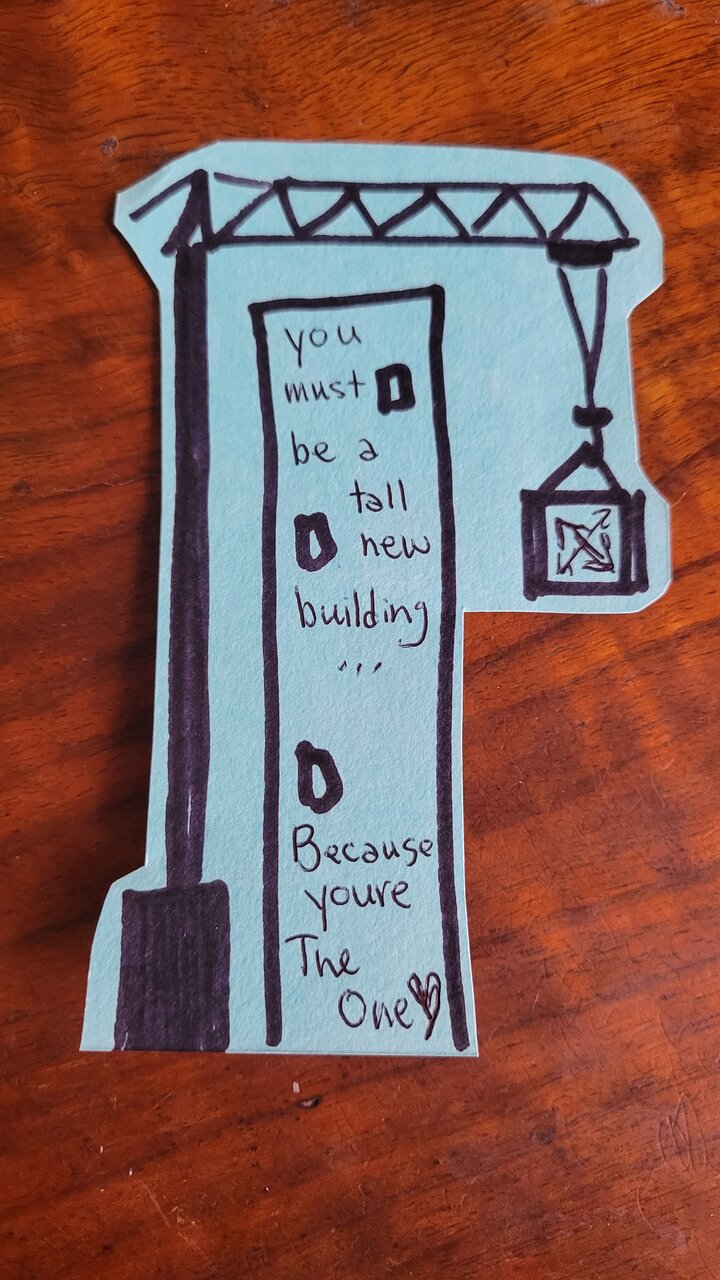 you
must
be a
tall
new
building
...
Because
youre
The
One